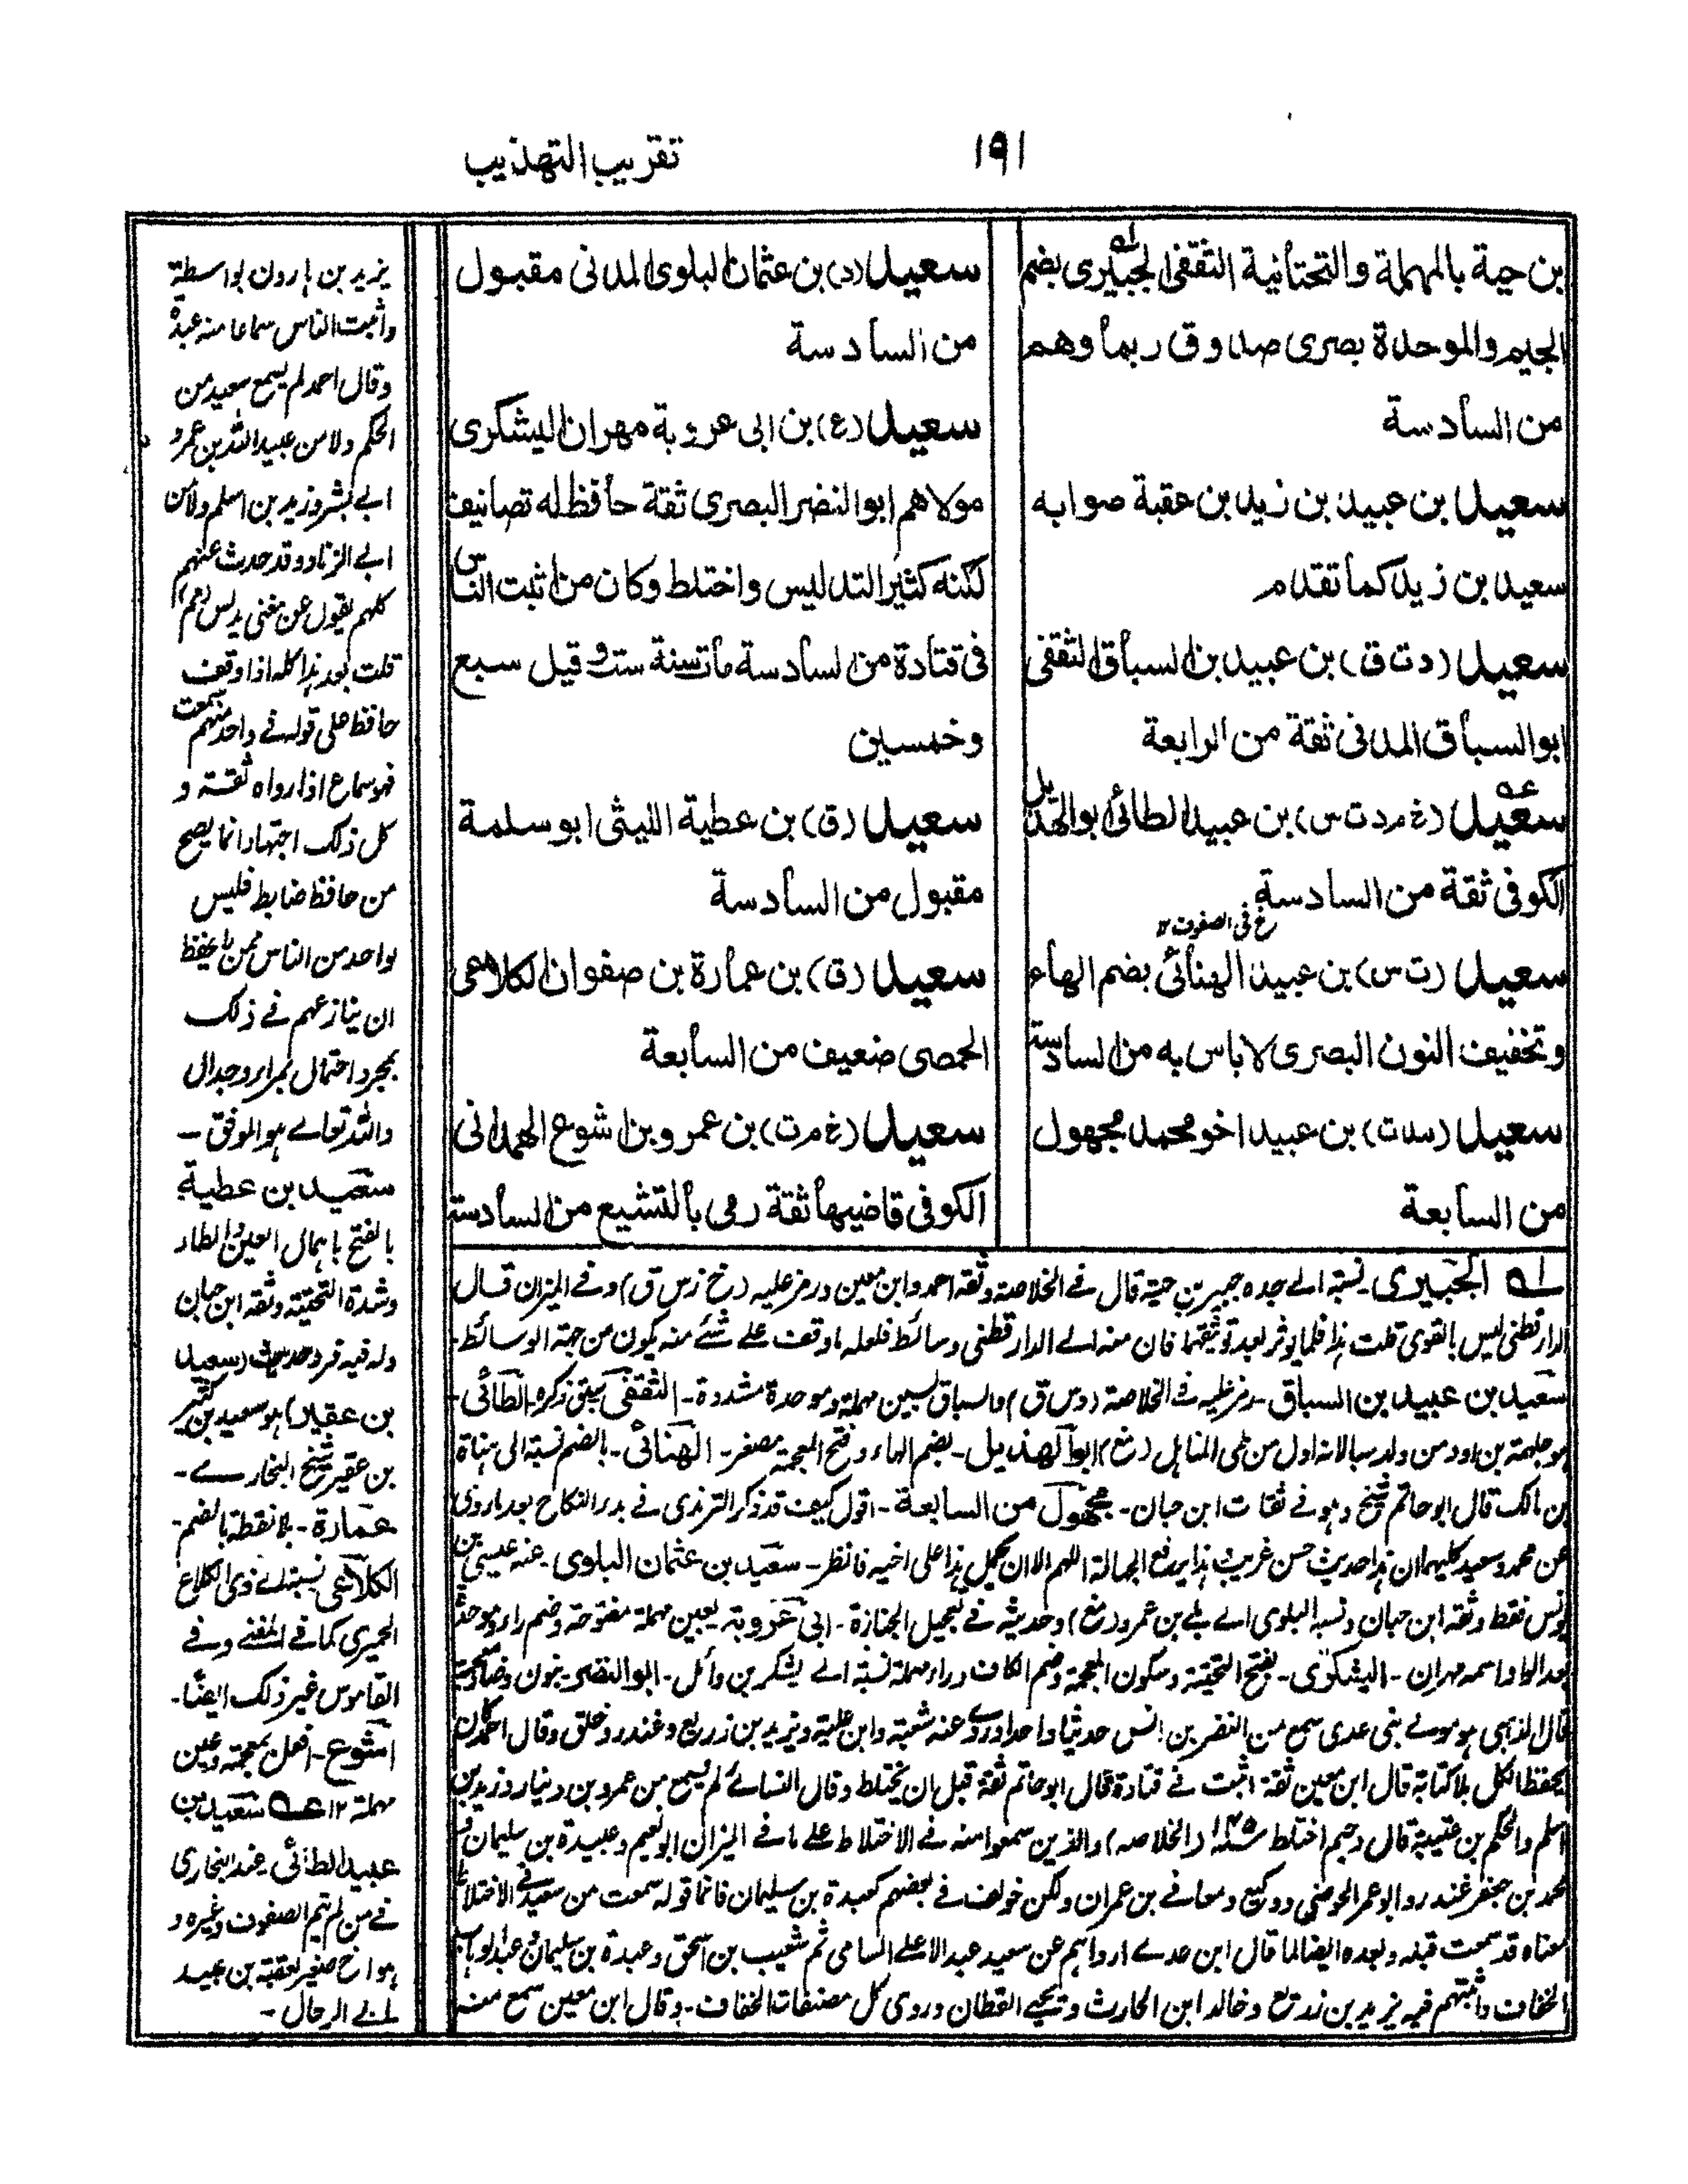 ١٩١
تقريب التهذيب
بن حية بالمهملة والتحتانية الثقفى الجبيرى بضم
الجيم والموحدة بصرى صدوق ربما وهم
من السادسة
سعيد بن عبيد بن زيد بن عقبة صوابه
سعيد بن زيد كما تقدم
سعيد (د ت ق) بن عبيد بن السباق الثقفى
ابو السباق المدنى ثقة من الرابعة
سعيد (خ م د ت س) بن عبيد الطائى ابو الهذيل
الكوفى ثقة من السادسة
خ فى الصفوف ١٢
سعيد (ت س) بن عبيد الهنائى بضم الهاء
وتخفيف النون البصرى لا باس به من السادسة
سعيد (مد ت) بن عبيد اخو محمد مجهول
من السابعة
سعيد (د) بن عثمان البلوى المدنى مقبول
من السادسة
سعيد (ع) بن ابى عروبة مهران اليشكرى
مولاهم ابو النضر البصرى ثقة حافظ له تصانيف
لكنه كثير التدليس واختلط وكان من اثبت الناس
فى قتادة من السادسة مات سنة ست وقيل سبع
وخمسين
سعيد (ق) بن عطية الليثى ابو سلمة
مقبول من السادسة
سعيد (ق) بن عمارة بن صفوان الكلاعى
الحمصى ضعيف من السابعة
سعيد (خ م ت) بن عمرو بن اشوع الهمدانى
الكوفى قاضيها ثقة رمى بالتشيع من السادسة
الجبيرى - نسبة الے جده جبير بن حية قال فے الخلاصة وثقه احمد وابن معين ورمز عليه (خ ز س ق) وفے الميزان قال
الدارقطنى ليس بالقوى قلت هذا فلما يوثر بعد توثيقهما فان منه الے الدارقطنى وسائط فلعله ما وقف علے شئے منه يكون من جهة الوسائط -
سعيد بن عبيد بن السباق - رمز عليه فے الخلاصة (د س ق) والسباق بسين مهملة وموحدة مشددة - الثقفى سبق ذكره - الطائى -
هو جلهمة بن ادد من ولد سبا لانه اول من طى المناهل (مغ) ابو الهذيل - بضم الهاء وفتح المعجمة مصغر - الهنائى - بالضم نسبة الى هناة
بن مالك قال ابو حاتم شيخ وهو فے ثقات ابن حبان - مجهول من السابعة - اقول كيف قد ذكر الترمذى فے بدر النكاح بعد ما روى
عن محمد وسعيد كليهما ان هذا حديث حسن غريب هذا يرفع الجهالة اللهم الا ان يحمل هذا على اخيه فانظر - سعيد بن عثمان البلوى - عنه عيسى بن
يونس فقط وثقه ابن حبان ونسبة البلوى الے بلے بن عمرو (مغ) وحديثه فے تعجيل الجنازة - ابى عروبة بعين مهملة مفتوحة وضم راء وموحدة
بعد الواو اسمه مهران - اليشكرى - بفتح التحتية وسكون المعجمة وضم الكاف وراء مهملة نسبة الے يشكر بن وائل - ابو النضر - بنون وضاد معجمة
قال الذهبى هو مولے بنى عدى سمع من النضر بن انس حديثا واحدا وروے عنه شعبة وابن علية ويزيد بن زريع وغندر وخلق وقال احمد كان
يحفظ الكل بلا كتابة قال ابن معين ثقة اثبت فے قتادة قال ابو حاتم ثقة قبل ان يختلط وقال النسائے لم يسمع من عمرو بن دينار وزيد بن
اسلم والحكم بن عتيبة قال دحيم اختلط سنة ١٤٥ (الخلاصه) والذين سمعوا منه فے الاختلاط علے ما فے الميزان ابو نعيم وعبيدة بن سليمان
محمد بن جعفر غندر وابو عمر الحوضى ووكيع ومعافے بن عمران ولكن خولف فے بعضهم كعبدة بن سليمان فانما قوله سمعت من سعيد فے الاختلاط
معناه قد سمعت قبله وبعده ايضا لما قال ابن عدے ارواهم عن سعيد عبد الاعلے السامى ثم شعيب بن اسحق وعبدة بن سليمان وعبد الوهاب
الخفاف واثبتهم فيه يزيد بن زريع وخالد ابن الحارث ويحيے القطان وروى كل مصنفات الخفاف - وقال ابن معين سمع منه
يزيد بن هارون بواسطة
واثبت الناس سماعا منه عبدة
وقال احمد لم يسمع سعيد من
الحكم ولا من عبيد الله بن عمرو
ابے بشر وزيد بن اسلم ولا من
ابے الزناد وقد حدث عنهم
كلهم يقول عن معنى يدلس
قلت بعد هذا كله اذا وقف
حافظ على قوله فے واحد منهم سمعت
فهو سماع اذا رواه ثقة و
كل ذلك اجتهاد انما يصح
من حافظ ضابط فليس
بواحد من الناس ممن لم يحفظ
ان ينازعهم فے ذلك
بمجرد احتمال بمراء وجدال
والله تعالے هو الموفق -
سعيد بن عطية
بالفتح باهمال العين والطاء
وشدة التحتية وثقه ابن حبان
وله فيه فرد حديث (سعيد
بن عقير) هو سعيد بن كثير
بن عقير شيخ البخارے -
عمارة - بلا نقطة بالضم -
الكلاعى نسبة الے ذى الكلاع
الحميرى كما فے المغنے وفے
القاموس غير ذلك ايضًا -
اشوع - افعل بمعجمة وعين
مهملة ١٢ سعيد بن
عبيد الطائى عند البخارى
فے من لم يتم الصفوف وغيره و
هو اخ صغير لعقبة بن عبيد
لمے الرحال -